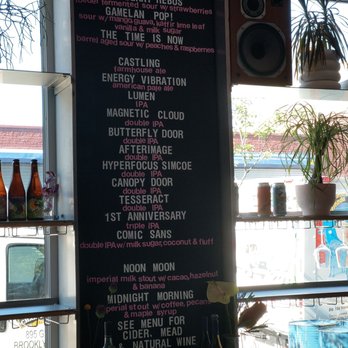 fermented sour w/ strawberries
GAMELAN POP!
sour w/ mango, guava, kaffir lime leaf
vanilla & milk sugar
THE TIME IS NOW
barrel aged sour w/ peaches & raspberries
CASTLING
farmhouse ale
ENERGY VIBRATION
american pale ale
LUMEN
IPA
MAGNETIC CLOUD
double IPA
BUTTERFLY DOOR
double IPA
AFTERIMAGE
double IPA
HYPERFOCUS SIMCOE
double IPA
CANOPY DOOR
double IPA
TESSERACT
double IPA
1ST ANNIVERSARY
triple IPA
COMIC SANS
double IPA w/ milk sugar, coconut & fluff
NOON MOON
imperial milk stout w/ cacao, hazelnut
& banana
MIDNIGHT MORNING
perial stout w/ coffee, pecan
& maple syrup
SEE MENU FOR
CIDER, MEAD
& NATURAL WINE
895
BROOKLY